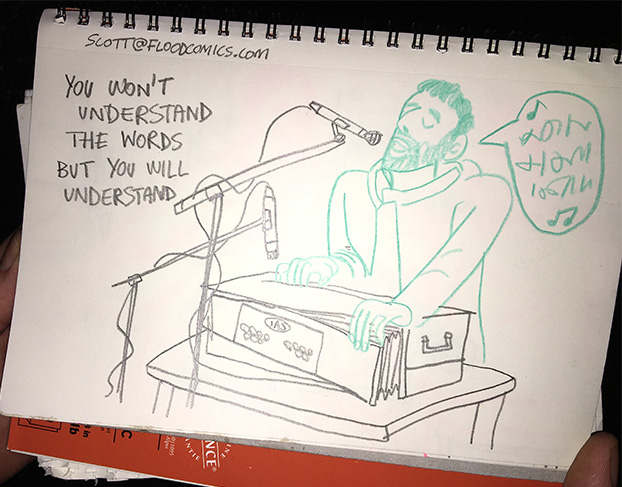 SCOTT@FLOODCOMICS.COM
YOU WON'T
UNDERSTAND
THE WORDS
BUT YOU WILL
UNDERSTAND